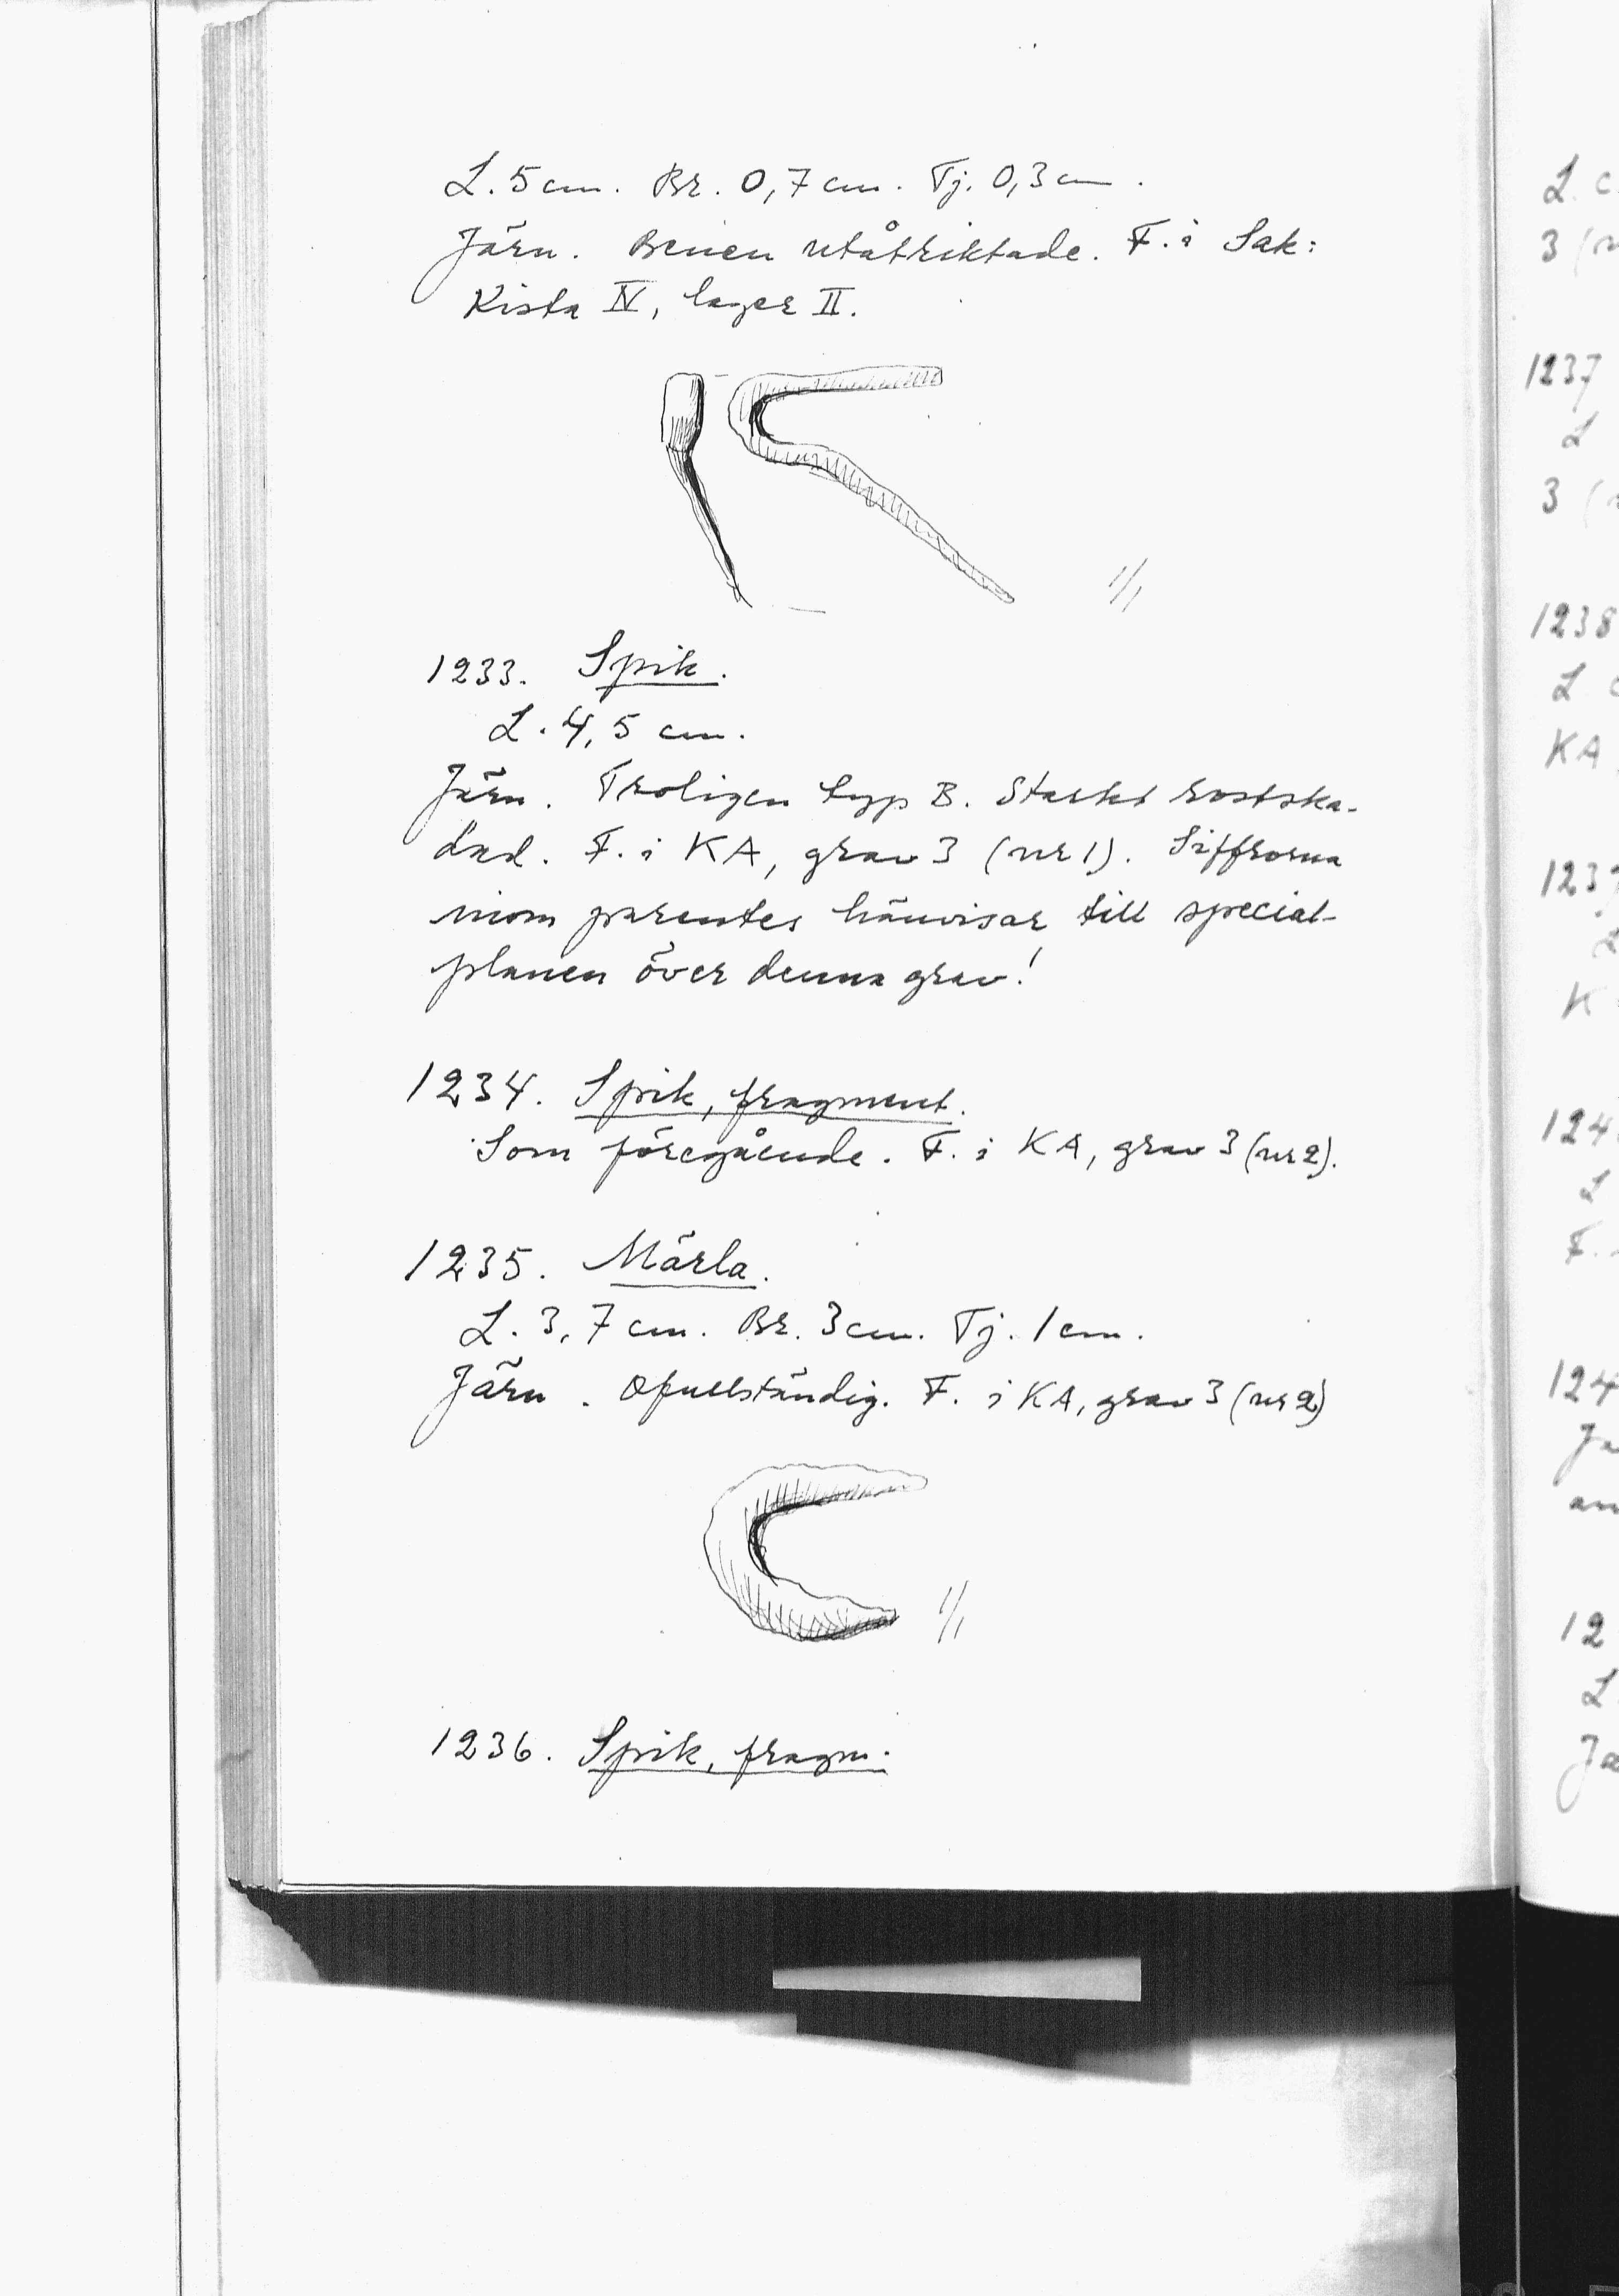 L. 5 cm. Br. 0,7 cm. Tj. 0,3 cm.
Järn. Benen utåtriktade. F. i Sak:
Kista IV, lager II.
1/1
1233. Spik.
L. 4,5 cm.
Järn. Troligen typ B. Starkt rostska-
dad. F. i KA, grav 3 (nr 1). Siffrorna
inom parentes hänvisar till special-
planen över denna grav!
1234. Spik, fragment.
Som föregående. F. i KA, grav 3 (nr 2).
1235. Märla.
L. 3,7 cm. Br. 3 cm. Tj. 1 cm.
Järn. Ofullständig. F. i KA, grav 3 (nr 2)
1/1
1236. Spik, fragm.
L. c
3 (n
1237
L
3 (
1238
L c
KA
123
K
124
L
F.
124
Jä
an
12
L
Jä